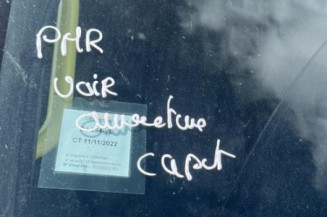 PMR
voir
ouverture
capot
CT 11/11/2022